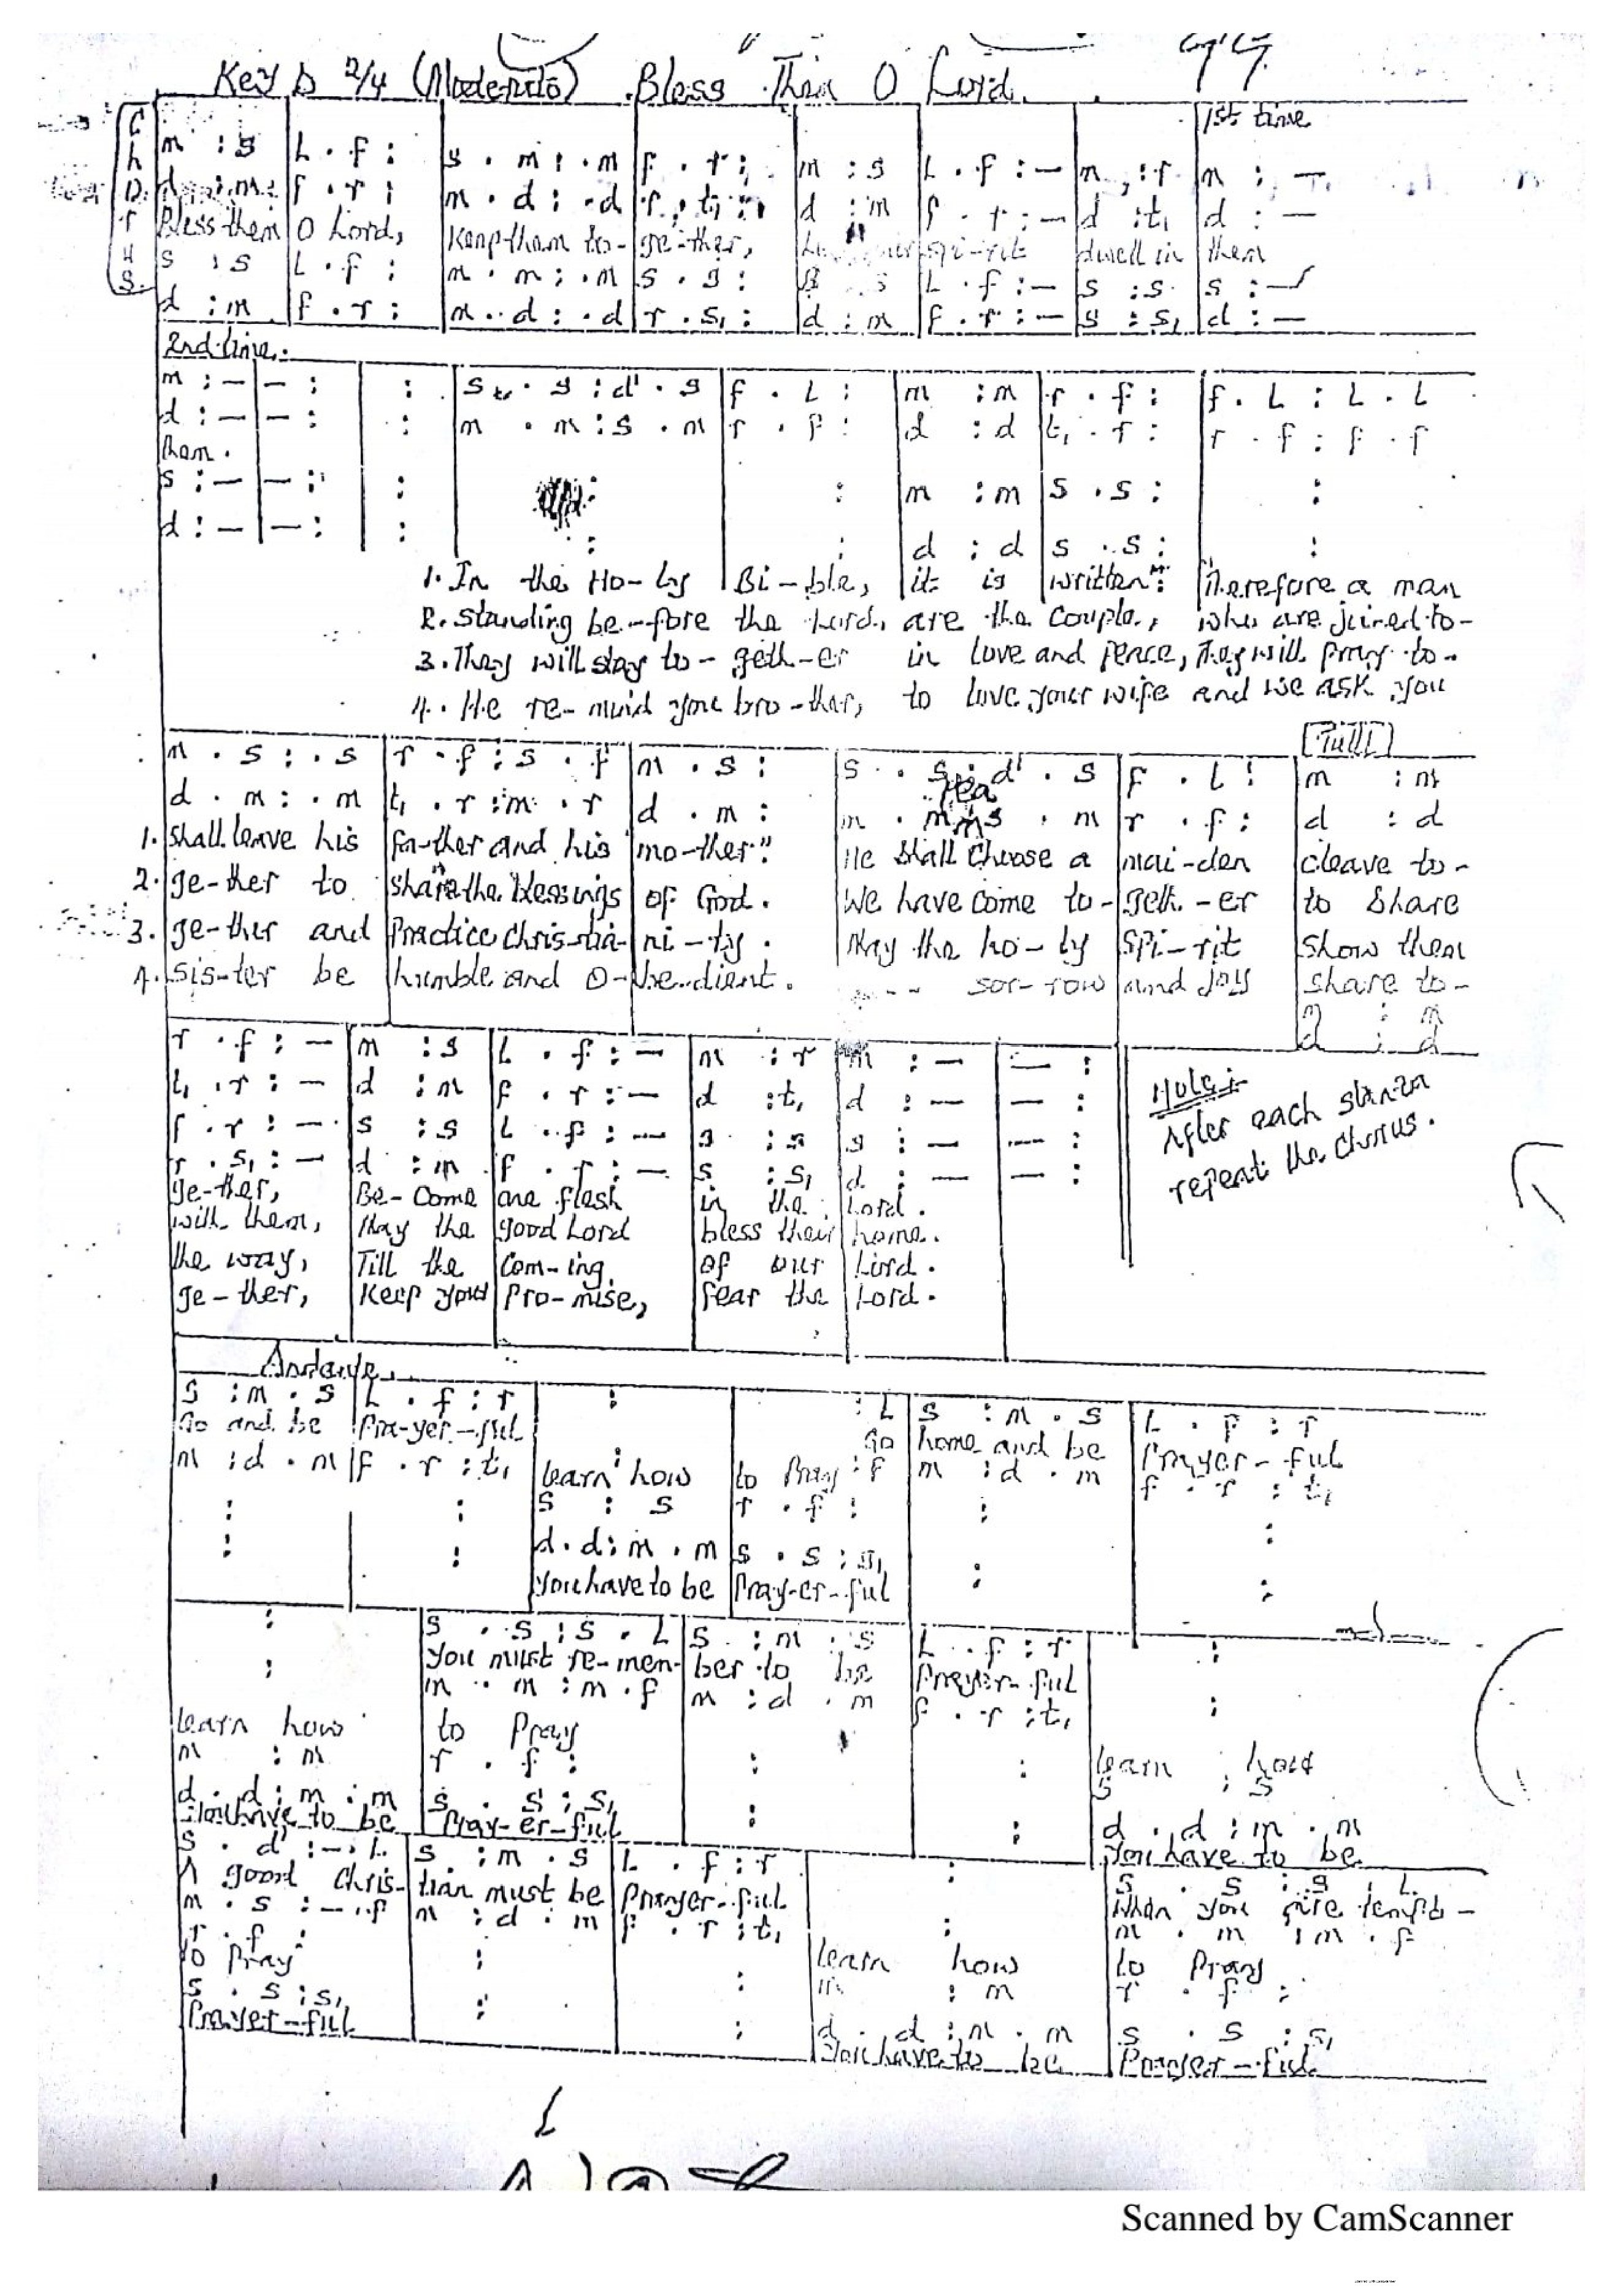 Key D 2/4 (Moderato) Bless Them O Lord.
Chorus
1st time
m : s | L . f : | s . m : . m | f . r : | m : s | L . f : — | m , : r | m : —
d : m | f . r : | m . d : . d | r . t, : | d : m | f . r : — | d : t, | d : —
Bless them | O Lord, | Keep them to- | ge-ther, | spi-rit | dwell in | them
s : s | L . f : | m . m : . m | s . s : | s : s | L . f : — | s : s | s : —
d : m | f . r : | m . d : . d | r . s, : | d : m | f . r : — | s : s, | d : —
2nd time.
m : — | — : | : | s . s : d' . s | f . L : | m : m | r . f : | f . L : L . L
d : — | — : | : | m . m : s . m | r . f : | d : d | t, . r : | r . f : f . f
them.
s : — | — : | : | : | : | m : m | s . s : | :
d : — | — : | : | : | : | d : d | s . s : | :
1. In the Ho-ly | Bi-ble, | it is | written": | Therefore a man
2. Standing be-fore the Lord, are the couple, who are joined to-
3. They will stay to-geth-er in love and peace, They will pray to-
4. He re-mind you bro-ther, to love your wife and we ask you
[Tutti]
m . s : . s | r . f : s . f | m . s : | s . s : d' . s | f . L : | m : m
d . m : . m | t, . r : m . r | d . m : | m . m : s . m | r . f : | d : d
1. shall leave his | fa-ther and his | mo-ther". | He shall choose a | mai-den | cleave to-
2. ge-ther to | share the blessings | of God. | We have come to- | geth-er | to share
3. ge-ther and | Practice Chris-tia- | ni-ty. | May the ho-ly | Spi-rit | show them
4. sis-ter be | humble and o- | be-dient. | sor-row | and joy | share to-
m : m
d : d
r . f : — | m : s | L . f : — | m : r | m : — | — :
t, . r : — | d : m | f . r : — | d : t, | d : — | — :
f . r : — | s : s | L . f : — | s : s | s : — | — :
r . s, : — | d : m | f . r : — | s : s, | d : — | — :
ge-ther, | Be-come | one flesh | in the | Lord.
with them, | May the | good Lord | bless their | home.
the way, | Till the | com-ing | of our | Lord.
ge-ther, | Keep your | pro-mise, | fear the | Lord.
Note:-
After each stanza
repeat the chorus.
Andante
s : m . s | L . f : r | : | : L | s : m . s | L . f : r
Go and be | Pra-yer-ful | Go | home and be | Prayer-ful
m : d . m | f . r : t, | learn how | to Pray : f | m : d . m | f . r : t,
: | : | s : s | r . f : | : | :
: | : | d . d : m . m | s . s : s, | : | :
You have to be | Pray-er-ful
: | s . s : s . L | s : m . s | L . f : r | :
You must re-mem- | ber to be | Prayer-ful
: | m . m : m . f | m : d . m | f . r : t, | :
learn how | to Pray | learn how
m : m | r . f : | : | : | s : s
d . d : m . m | s . s : s, | : | : | d . d : m . m
You have to be | Pray-er-ful | You have to be
s . d' : — . L | s : m . s | L . f : r | : | s . s : s . L
A good Chris- | tian must be | Prayer-ful | When you are tempt-
m . s : — . f | m : d . m | f . r : t, | : | m . m : m . f
r . f : | : | : | m : m | r . f :
to Pray | learn how | to Pray
s . s : s, | : | : | d . d : m . m | s . s : s,
Prayer-ful | You have to be | Prayer-ful
Scanned by CamScanner